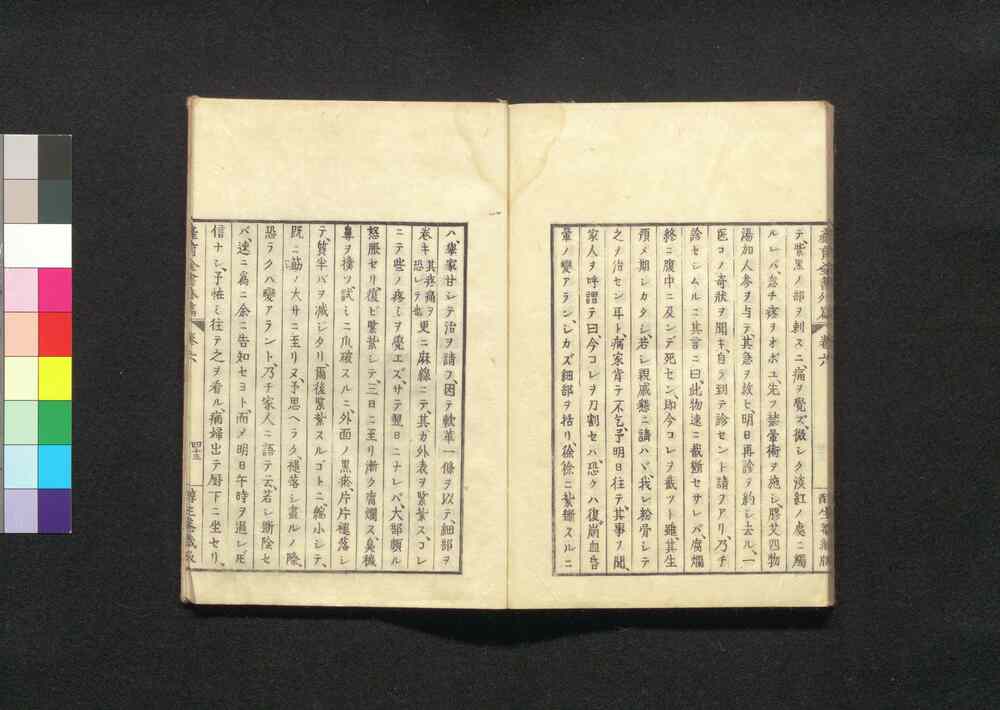 テ、紫黒ノ部ヲ刺スニ、痛ヲ覺ズ、微シク淡紅ノ處ニ觸
ルレバ、忽チ疼ヲオボエ、先ヲ禁暈術ヲ施シ、膠艾四物
湯加人参ヲ与テ、其急ヲ救ヒ、明日再診ヲ約シ去ル、一
医コノ奇狀ヲ聞キ、自ラ到テ診セント請ヲアリ、乃チ
診セシムルニ、其言ニ曰、此物速ニ截斷セサレバ、腐爛
終ニ腹中ニ及ンデ死セン、即今コレヲ截ツト雖、其生
預メ期シカタシ、若シ親戚懇ニ請ハヾ、我レ粉骨シテ
之ヲ治セン耳ト、病家肯テ不乞、予明日往テ、其事ヲ聞、
家人ヲ呼謂テ曰、今コレヲ刀割セハ、恐クハ復崩血昏
暈ノ變アラン、シカズ細部ヲ括リ、徐徐ニ紮斷スルニ
ハ、挙家甘シテ治ヲ請フ、因テ軟革一條ヲ以テ、細部ヲ
卷キ 其疼痛ヲ恐レテ也 更ニ麻線ニテ、其カ外表ヲ緊紮ス、コレ
ニテ些ノ疼ミヲ覺エズ、サテ翌日ニナレバ、大部頗ル
怒脹セリ、復ビ緊紮シテ、三日ニ至リ、漸ク腐爛ス、臭穢
鼻ヲ撲ツ、試ミニ爪破スルニ、外面ノ黒痂、片片褪落シ
テ、質半バヲ減シタリ、爾後緊紮スルゴトニ縮小シテ、
既ニ筋ノ大サニ至リヌ、予思ヘラク、褪落シ盡ルノ際、
恐ラクハ變アラント、乃チ家人ニ語テ云、若シ斷陰セ
バ、速ニ為ニ余ニ告知セヨト、而メ明日午時ヲ過レ𪜈
信ナシ、予恠ミ往テ之ヲ看ル、病婦出テ厨下ニ坐セリ、
産育全書外篇 卷六 四十三